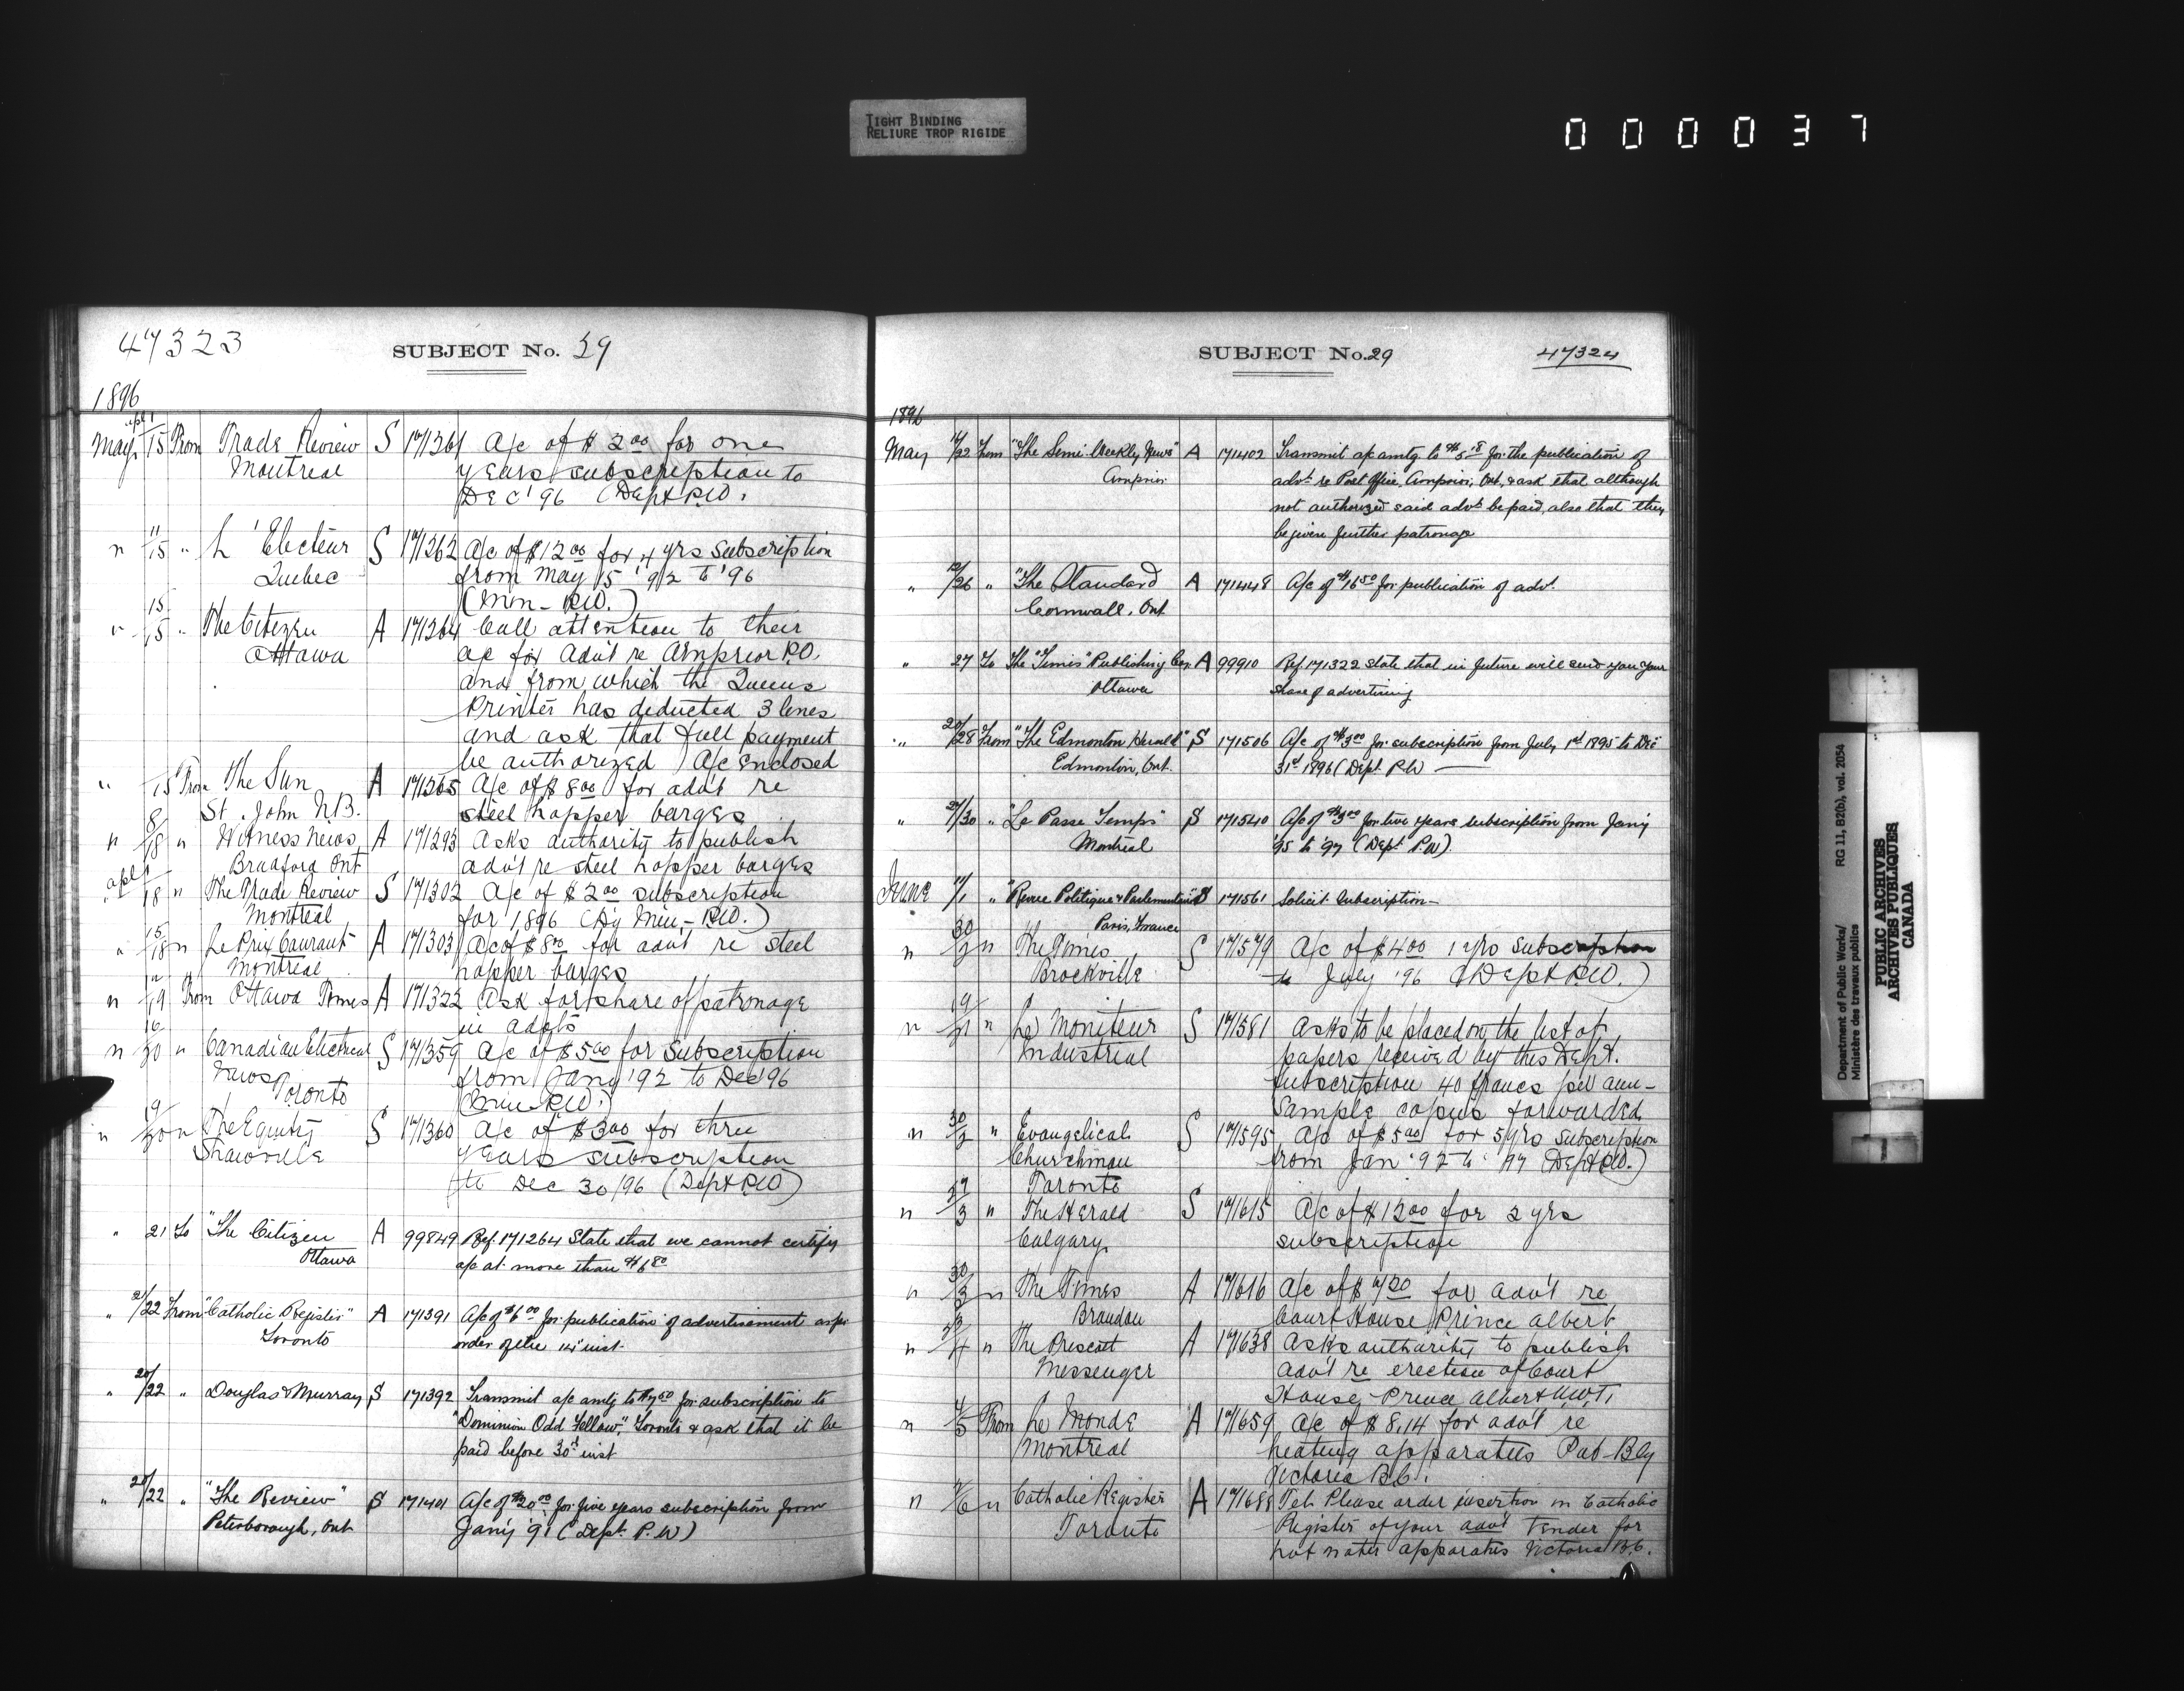 TIGHT BINDING
RELIURE TROP RIGIDE
000037
47323
SUBJECT No. 29
1896
apl 1
May 15 From Trade Review S 171261 A/c of $2.00 for one
Montreal years subscription to
DEC '96 (Dept P.W.
11
" 15 " L'Electeur S 171262 A/c of $12.00 for 4 yrs subscription
Quebec from May 15 '92 to '96
(Min - P.W.)
15
" 15 " The Citizen A 171264 Call attention to their
Ottawa a/c for Advt re Arnprior P.O.
and from which the Queens
Printer has deducted 3 lines
and ask that full payment
be authorized A/c Enclosed
" 15 From The Sun A 171265 A/c of $8.00 for advt re
St. John N.B. steel hopper barges
8
" 18 " Witness News A 171293 Asks authority to publish
Bradford Ont advt re steel hopper barges
apl 1
" 18 " The Trade Review S 171302 A/c of $2.00 subscription
Montreal for 1896 (Hy Min - P.W.)
15
" 18 " Le Prix Courant A 171303 A/c of $8.00 for advt re steel
Montreal hopper barges
" 19 From Ottawa Times A 171322 Ask for share of patronage
in advts
16
" 20 " Canadian Electrical S 171359 A/c of $5.00 for Subscription
News from Jany '92 to Dec '96
Toronto (Min - P.W.)
19
" 20 " The Equity S 171360 A/c of $3.00 for three
Shawville years subscription
to Dec 30/96 (Dept P.W)
" 21 To "The Citizen A 99849 Ref. 171264 State that we cannot certify
Ottawa a/c at more than $6.80
" 21/22 From "Catholic Register" A 171391 A/c of $6.00 for publication of advertisement as per
Toronto order of the 14" inst.
" 20/22 " Douglas & Murray S 171392 Transmit a/c amtg to $7.50 for subscription to
"Dominion Odd Fellow", Toronto & ask that it be
paid before 30th inst
" 20/22 " "The Review" S 171401 A/c of $20.00 for five years subscription from
Peterborough, Ont Jan'y '91 (Dept. P.W)
SUBJECT No. 29
47324
1896
May 14/22 From "The Semi-Weekly News" A 171402 Transmit a/c amtg to $5.18 for the publication of
Arnprior advt re Post Office, Arnprior, Ont. & ask that although
not authorized said advt be paid, also that they
be given further patronage
" 12/26 " "The Standard A 171448 A/c of $16.50 for publication of advt.
Cornwall, Ont
" 27 To The "Times" Publishing Coy. A 99910 Ref. 171322 state that in future will send you your
Ottawa share of advertising
" 20/28 From "The Edmonton Herald" S 171506 A/c of $3.00 for subscription from July 1st 1895 to Dec
Edmonton, Ont. 31st 1896 (Dept. P.W
" 27/30 " "Le Passe Temps" S 171540 A/c of $3.00 for two years subscription from Jan'y
Montreal '95 to '97 (Dept P.W)
June 14/1 " "Revue Politique & Parlementaire" S 171561 Solicit subscription -
Paris, France
30
" 2 " The Times S 171579 A/c of $4.00 1 yrs subscription
Brockville to July '96 (Dept P.W.)
19
" 2 " Le Moniteur S 171581 Asks to be placed on the list of
Industriel papers received by this Dept.
subscription 40 francs per ann -
Sample copies forwarded
30
" 2 " Evangelical S 171595 A/c of $5.00 for 5 yrs subscription
Churchman from Jan '92 to '97 (Dept P.W.)
Toronto
29
" 3 " The Herald S 171615 A/c of $12.00 for 2 yrs
Calgary subscription
30
" 3 " The Times A 171616 A/c of $7.20 for advt re
Brandon Court House Prince Albert
" 4 " The Prescott A 171638 Asks authority to publish
Messenger advt re erection of Court
House - Prince Albert N.W.T.
4
" 5 From Le Monde A 171659 A/c of $8.14 for advt re
Montreal heating apparatus Pub - Bly
Victoria B.C.
" 6 " Catholic Register A 171688 Tel. Please order insertion in Catholic
Toronto Register of your advt Tender for
hot water apparatus Victoria B.C.
Department of Public Works/ RG 11, B2(b), vol. 2054
Ministère des travaux publics
PUBLIC ARCHIVES
ARCHIVES PUBLIQUES
CANADA